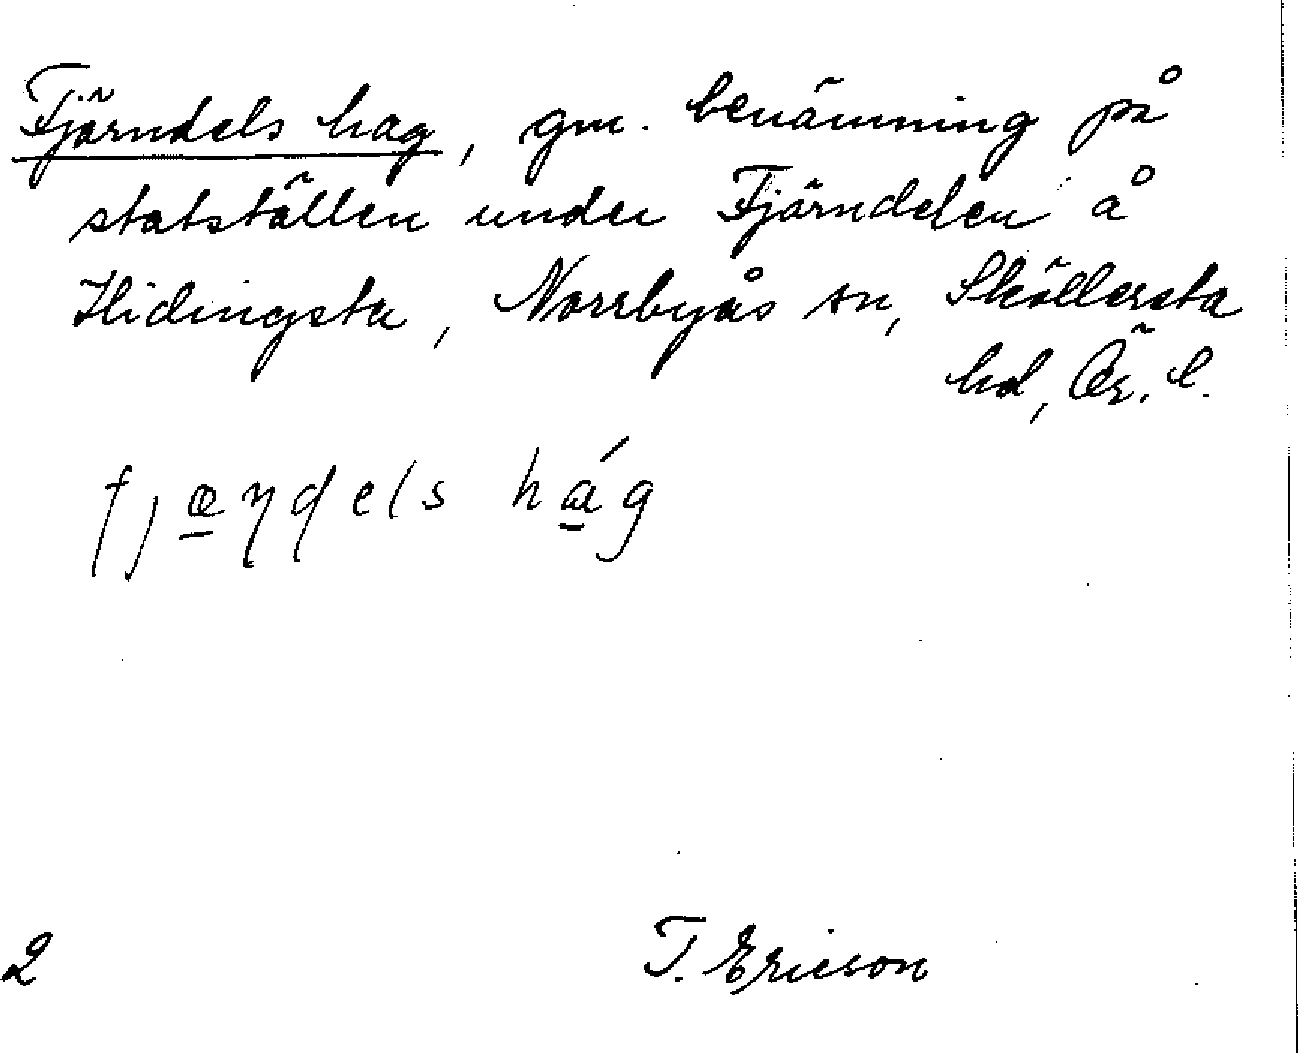 Fjärndels hag, gm. benämning på
statställen under Fjärndelen å
Hidingsta, Norrbyås sn, Sköllersta
hd, Ör. l.
fjæɳɖels hág
2
T. Ericson